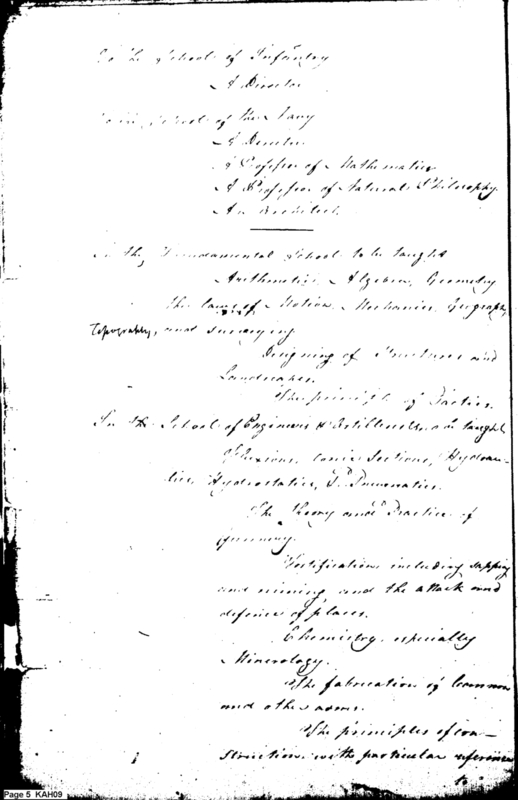 To the School of Infantry
A Director
To the School of the Navy
A Director
A Professor of Mathematics
A Professor of Natural Philosophy.
An Architect.
In the Fundamental School to be taught
Arithmetic, Algebra, Geometry
the laws of Motion, Mechanics, Geography,
Topography, and surveying
Designing of Structures and
Landscapes.
The principles of Tactics.
In the School of Engineers & Artillerists, taught
Fluxions, Conic Sections, Hydrau-
lics, Hydrostatics, & Pneumatics.
The theory and Practice of
Gunnery.
Fortification including sapping
and mining and the attack and
defence of places.
Chemistry, especially
Minerology.
The fabrication of Cannon
and other arms.
The principles of con-
struction, with particular reference
to
Page 5 KAH09